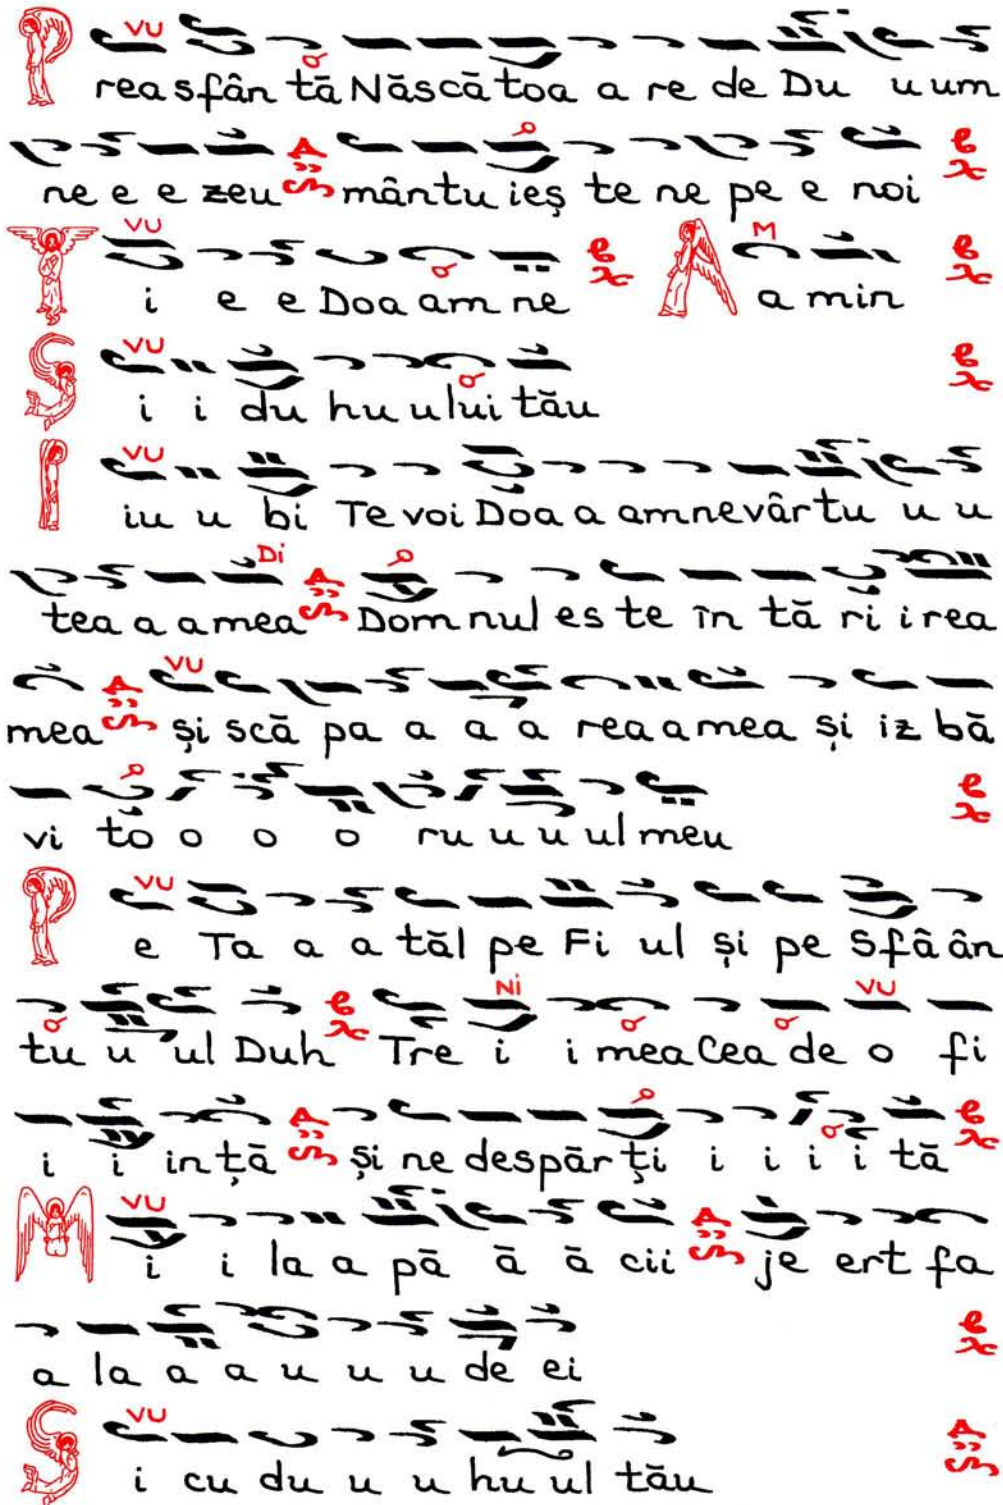 VU
Prea sfân tă Năs că toa a re de Du u um
ne e e zeu mân tu ieș te ne pe e noi
VU M
Ți e e Doa am ne A a min
VU
Și i du hu u lui tău
VU
Iu u bi Te voi Doa a am ne vâr tu u u
Di
tea a a mea Dom nul es te în tă ri i rea
VU
mea și scă pa a a a rea a mea și iz bă
vi to o o o ru u u ul meu
VU
Pe Ta a a tăl pe Fi ul și pe Sfâ ân
NI VU
tu u ul Duh Tre i i mea Cea de o fi
i i in ță și ne despăr ți i i i i tă
VU
Mi i la a pă ă ă cii je ert fa
a la a a u u u de ei
VU
Și cu du u u hu ul tău